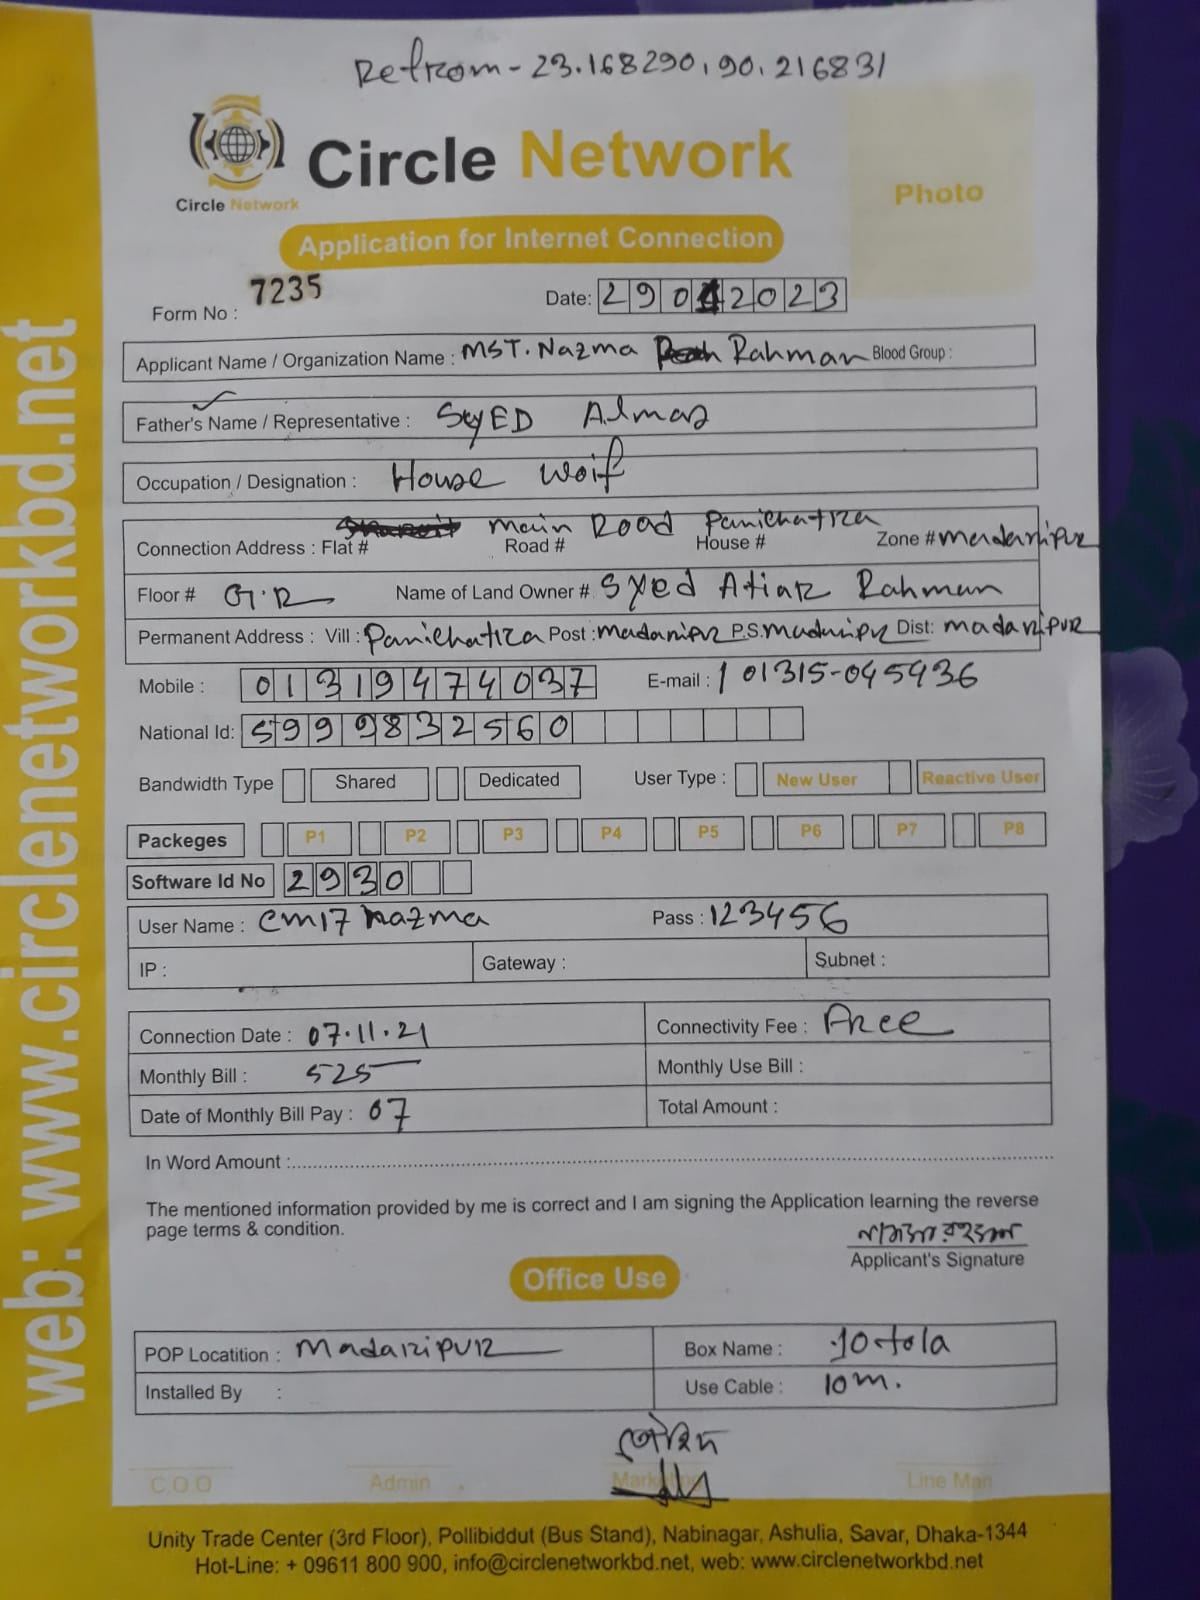 Retrom - 23.168290, 90.216831
Circle Network
Circle Network
Photo
Application for Internet Connection
Form No : 7235
Date: 29042023
Applicant Name / Organization Name : MST. Nazma Rahman Blood Group :
Father's Name / Representative : SYED Almas
Occupation / Designation : House Woif
Connection Address : Flat # Road # Main Road House # Panichatra Zone # madaripur
Floor # G.R Name of Land Owner # Syed Atiar Rahman
Permanent Address : Vill : Panichatra Post : madaripur P.S. madaripur Dist: madaripur
Mobile : 01319474037 E-mail : / 01315-045936
National Id: 5999832560
Bandwidth Type Shared Dedicated User Type : New User Reactive User
Packeges P1 P2 P3 P4 P5 P6 P7 P8
Software Id No 2930
User Name : cm17nazma Pass : 123456
IP : Gateway : Subnet :
Connection Date : 07.11.21 Connectivity Fee : Free
Monthly Bill : 525 Monthly Use Bill :
Date of Monthly Bill Pay : 07 Total Amount :
In Word Amount :
The mentioned information provided by me is correct and I am signing the Application learning the reverse
page terms & condition.
নাজমা রহমান
Applicant's Signature
Office Use
POP Locatition : Madaripur Box Name : 10tola
Installed By : Use Cable : 10m.
তৌহিদ
C.O.O Admin Marketing Line Man
Unity Trade Center (3rd Floor), Pollibiddut (Bus Stand), Nabinagar, Ashulia, Savar, Dhaka-1344
Hot-Line: + 09611 800 900, info@circlenetworkbd.net, web: www.circlenetworkbd.net
web: www.circlenetworkbd.net